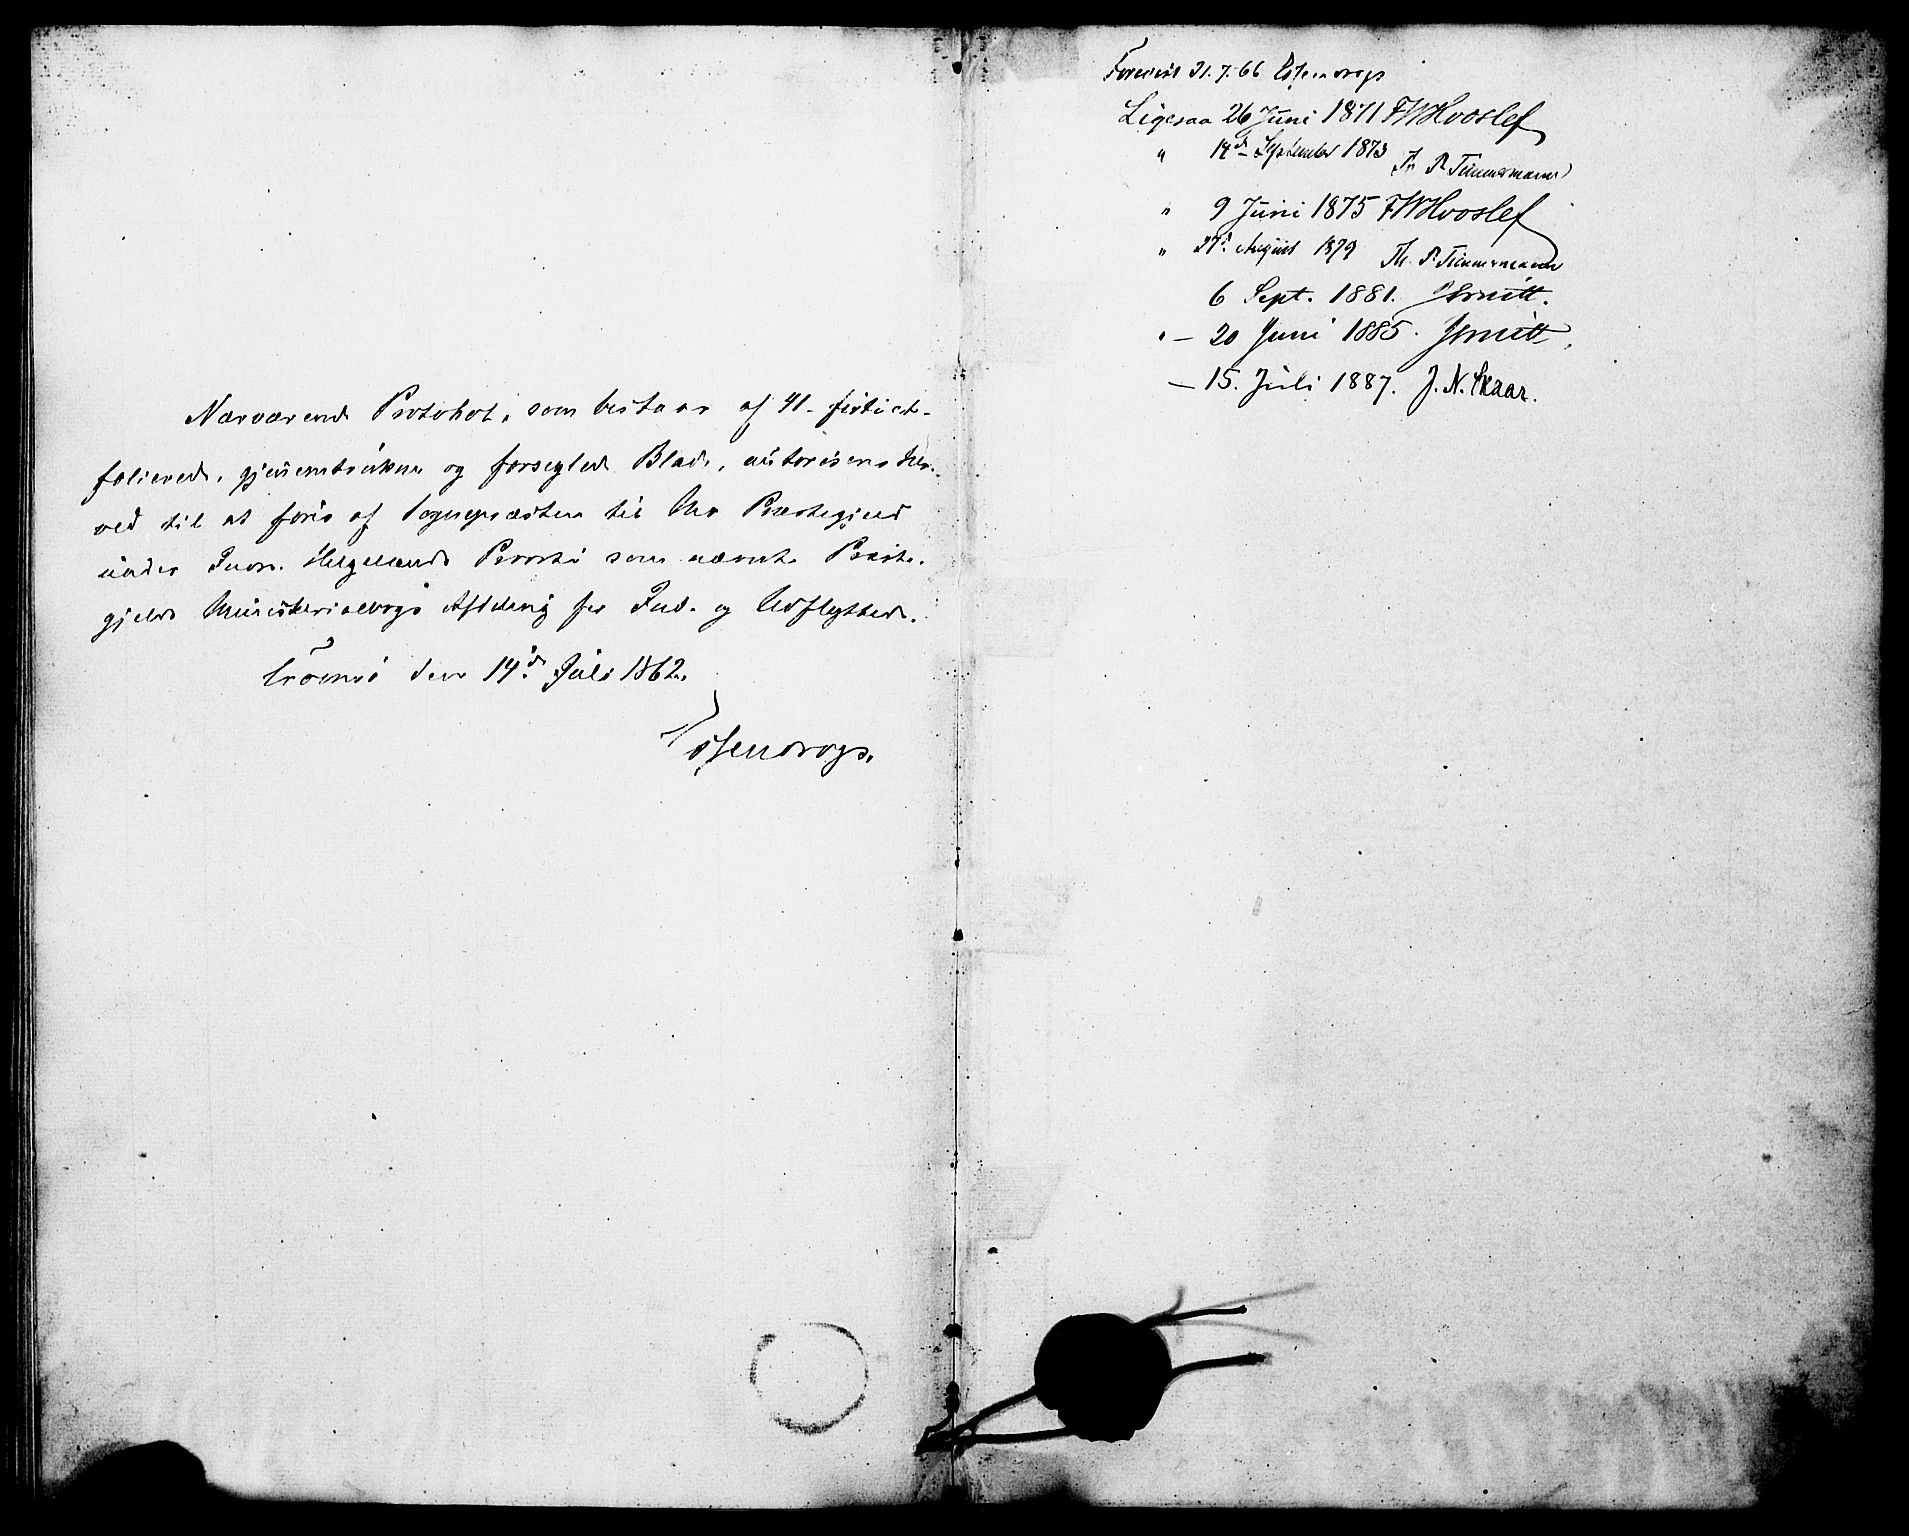 Nærværende Protokol, som bestaar af 41 - firtiet -
folierede, gjennemtrukne og forseglede Blade, autoriseres her-
ved til at føres af Sognepræsten til Præstegjeld
under Helgelands Provsti som nævnte Præste-
gjelds Ministerialbogs Afdeling for Ind- og Udflyttede.
Tromsø den 14de Juli 1862.
Essendrop.
Forevist 21.7.66 Essendrop
Ligesaa 26 Juni 1871 FWHvoslef
" 14de September 1873 Th. P. Timmermann
" 9 Juni 1875 FWHvoslef
" 27de August 1879 Th. P. Timmermann
6 Sept. 1881. JSmitt.
" - 20 Juni 1885. JSmitt.
- 15. Juli 1887. J. N. Skaar.